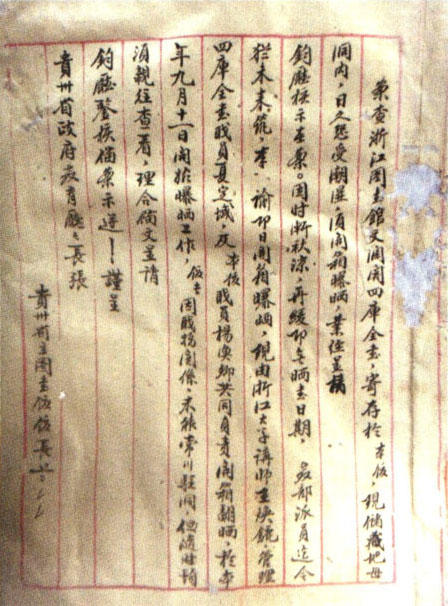 案查浙江圖書館文瀾閣四庫全書，寄存於本館，現儲藏地母
洞內，日久恐受潮濕，須開箱曝晒，業經呈請
鈞廳核示在案。因時漸秋涼，再緩即失晒書日期，部派員迄今
未來筑，奉 諭即日開箱曝晒，現由浙江大學講師王煥鑣，管理
四庫全書職員夏定域，及本館職員楊煥卿共同負責開箱翻晒，於本
年九月十一日開始曝晒工作，館長因職務關係，未能常川駐洞，但隨時均
須親往查看，理合備文呈請
鈞廳鑒核備案示遵！謹呈
貴州省政府教育廳廳長張
貴州省立圖書館館長